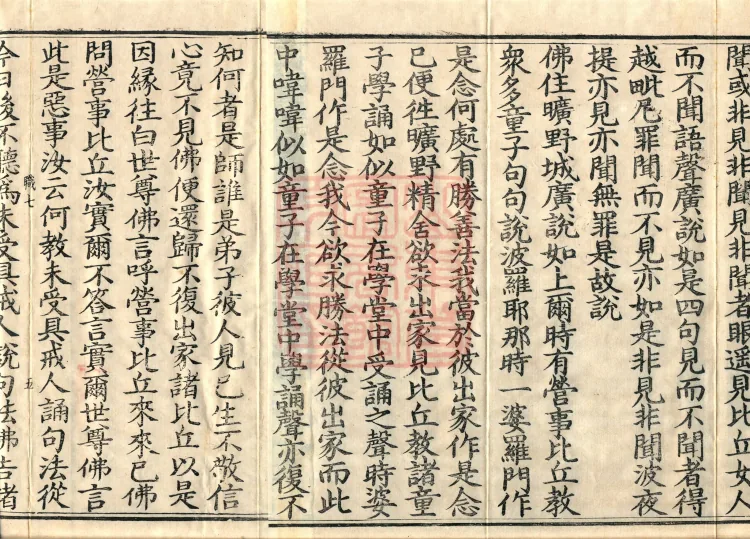 聞或非見非聞見非聞者眼遥見比丘女人
而不聞語聲廣說如是四句見而不聞者得
越毗尼罪聞而不見亦如是非見非聞波夜
提亦見亦聞無罪是故說
佛住曠野城廣說如上爾時有營事比丘教
衆多童子句句說波羅耶那時一婆羅門作
是念何處有勝善法我當於彼出家作是念
已便往曠野精舍欲求出家見比丘教諸童
子學誦如似童子在學堂中受誦之聲時婆
羅門作是念我今欲求勝法從彼出家而此
中喡喡似如童子在學堂中學誦聲亦復不
知何者是師誰是弟子彼人見已生不敬信
心竟不見佛便還歸不復出家諸比丘以是
因緣往白世尊佛言呼營事比丘來來已佛
問營事比丘汝實爾不答言實爾世尊佛言
此是惡事汝云何教未受具戒人誦句法從
職七 五
今日後不聽爲未受具戒人說句法佛告諸